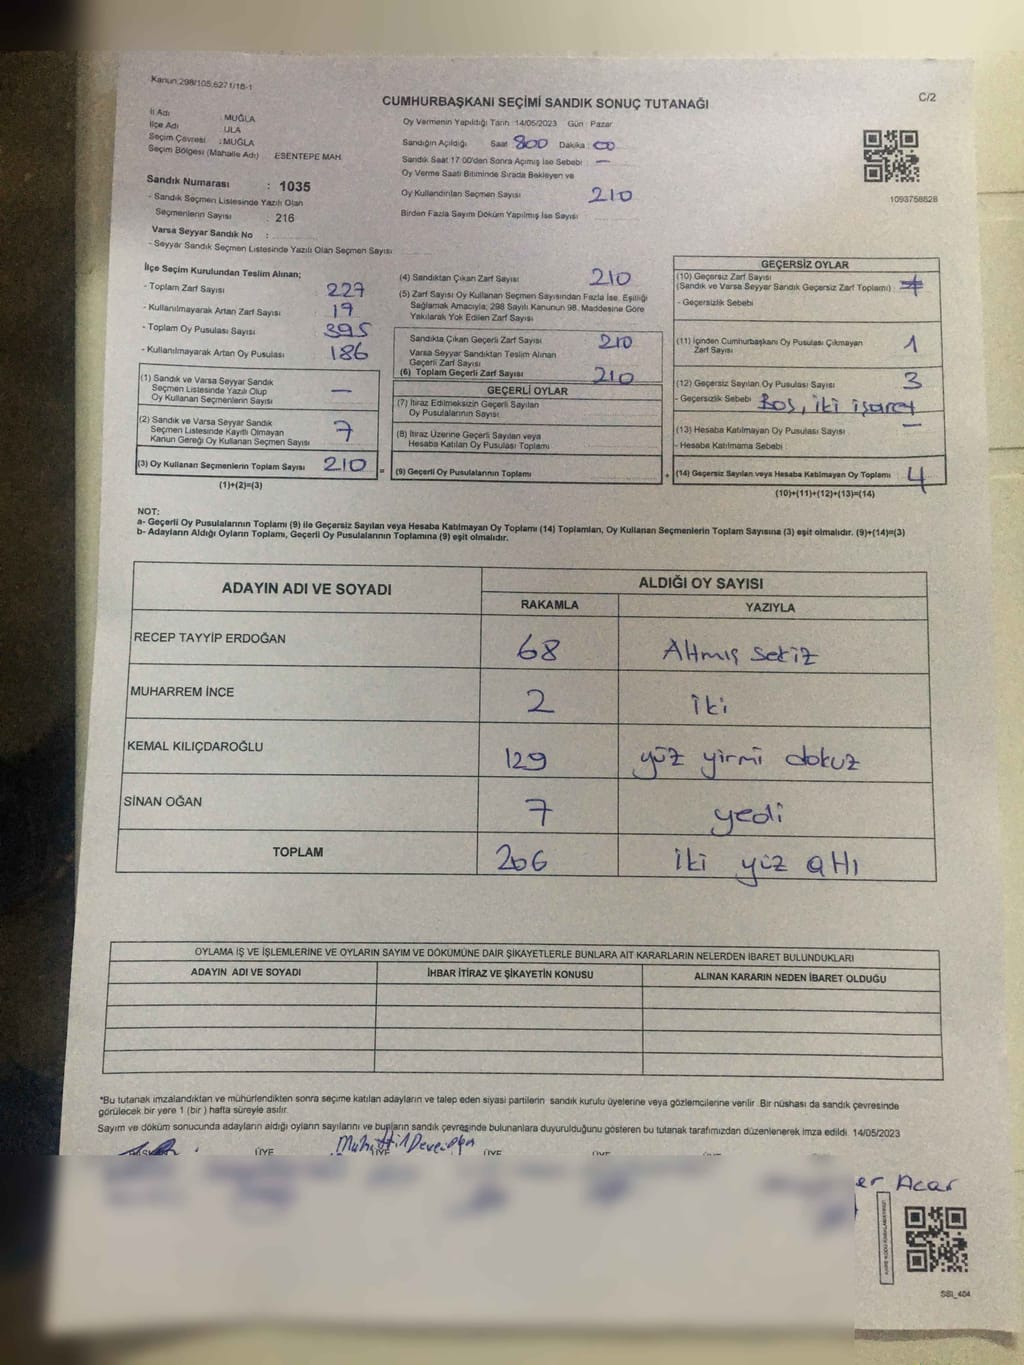 Kanun:298/105;6271/18-1
C/2
CUMHURBAŞKANI SEÇİMİ SANDIK SONUÇ TUTANAĞI
İl Adı : MUĞLA
İlçe Adı : ULA
Seçim Çevresi : MUĞLA
Seçim Bölgesi (Mahalle Adı) : ESENTEPE MAH.
Sandık Numarası : 1035
- Sandık Seçmen Listesinde Yazılı Olan
Seçmenlerin Sayısı : 216
Varsa Seyyar Sandık No :
- Seyyar Sandık Seçmen Listesinde Yazılı Olan Seçmen Sayısı
Oy Vermenin Yapıldığı Tarih :14/05/2023 Gün : Pazar
Sandığın Açıldığı Saat 800 Dakika : 00
Sandık Saat 17:00'den Sonra Açılmış İse Sebebi : —
Oy Verme Saati Bitiminde Sırada Bekleyen ve
Oy Kullandırılan Seçmen Sayısı 210
Birden Fazla Sayım Döküm Yapılmış İse Sayısı
1093758828
İlçe Seçim Kurulundan Teslim Alınan;
- Toplam Zarf Sayısı 227
- Kullanılmayarak Artan Zarf Sayısı : 17
- Toplam Oy Pusulası Sayısı : 395
- Kullanılmayarak Artan Oy Pusulası 186
(1) Sandık ve Varsa Seyyar Sandık
Seçmen Listesinde Yazılı Olup
Oy Kullanan Seçmenlerin Sayısı —
(2) Sandık ve Varsa Seyyar Sandık
Seçmen Listesinde Kayıtlı Olmayan
Kanun Gereği Oy Kullanan Seçmen Sayısı 7
(3) Oy Kullanan Seçmenlerin Toplam Sayısı 210 =
(1)+(2)=(3)
(4) Sandıktan Çıkan Zarf Sayısı 210
(5) Zarf Sayısı Oy Kullanan Seçmen Sayısından Fazla İse, Eşitliği
Sağlamak Amacıyla; 298 Sayılı Kanunun 98. Maddesine Göre
Yakılarak Yok Edilen Zarf Sayısı
Sandıkta Çıkan Geçerli Zarf Sayısı 210
Varsa Seyyar Sandıktan Teslim Alınan
Geçerli Zarf Sayısı
(6) Toplam Geçerli Zarf Sayısı 210
GEÇERLİ OYLAR
(7) İtiraz Edilmeksizin Geçerli Sayılan
Oy Pusulalarının Sayısı
(8) İtiraz Üzerine Geçerli Sayılan veya
Hesaba Katılan Oy Pusulası Toplamı
(9) Geçerli Oy Pusulalarının Toplamı +
GEÇERSİZ OYLAR
(10) Geçersiz Zarf Sayısı
(Sandık ve Varsa Seyyar Sandık Geçersiz Zarf Toplamı)
- Geçersizlik Sebebi
(11) İçinden Cumhurbaşkanı Oy Pusulası Çıkmayan
Zarf Sayısı 1
(12) Geçersiz Sayılan Oy Pusulası Sayısı 3
- Geçersizlik Sebebi Boş, iki işaret
(13) Hesaba Katılmayan Oy Pusulası Sayısı —
- Hesaba Katılmama Sebebi
(14) Geçersiz Sayılan veya Hesaba Katılmayan Oy Toplamı 4
(10)+(11)+(12)+(13)=(14)
NOT:
a- Geçerli Oy Pusulalarının Toplamı (9) ile Geçersiz Sayılan veya Hesaba Katılmayan Oy Toplamı (14) Toplamları, Oy Kullanan Seçmenlerin Toplam Sayısına (3) eşit olmalıdır. (9)+(14)=(3)
b- Adayların Aldığı Oyların Toplamı, Geçerli Oy Pusulalarının Toplamına (9) eşit olmalıdır.
ADAYIN ADI VE SOYADI
ALDIĞI OY SAYISI
RAKAMLA YAZIYLA
RECEP TAYYİP ERDOĞAN 68 Altmış sekiz
MUHARREM İNCE 2 iki
KEMAL KILIÇDAROĞLU 129 yüz yirmi dokuz
SİNAN OĞAN 7 yedi
TOPLAM 206 iki yüz altı
OYLAMA İŞ VE İŞLEMLERİNE VE OYLARIN SAYIM VE DÖKÜMÜNE DAİR ŞİKAYETLERLE BUNLARA AİT KARARLARIN NELERDEN İBARET BULUNDUKLARI
ADAYIN ADI VE SOYADI İHBAR İTİRAZ VE ŞİKAYETİN KONUSU ALINAN KARARIN NEDEN İBARET OLDUĞU
*Bu tutanak imzalandıktan ve mühürlendikten sonra seçime katılan adayların ve talep eden siyasi partilerin sandık kurulu üyelerine veya gözlemcilerine verilir. Bir nüshası da sandık çevresinde
görülecek bir yere 1 (bir ) hafta süreyle asılır.
Sayım ve döküm sonucunda adayların aldığı oyların sayılarını ve bunların sandık çevresinde bulunanlara duyurulduğunu gösteren bu tutanak tarafımızdan düzenlenerek imza edildi. 14/05/2023
ÜYE ÜYE ÜYE ÜYE
er Acar
SSI_404